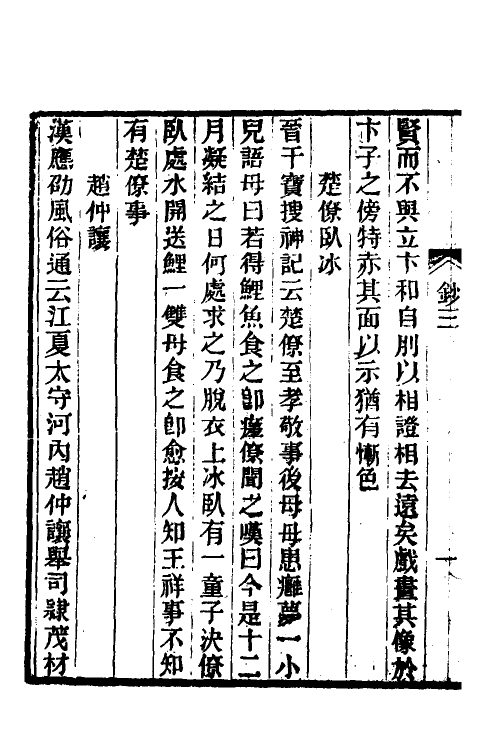 鈔三
賢而不與立卞和自刖以相證相去遠矣戲畫其像於
卞子之傍特赤其面以示猶有慚色
楚僚臥冰
晉干寶搜神記云楚僚至孝敬事後母母患癰夢一小
兒語母曰若得鯉魚食之卽瘥僚聞之嘆曰今是十二
月凝結之日何處求之乃脫衣上冰臥有一童子決僚
臥處水開送鯉一雙母食之卽愈按人知王祥事不知
有楚僚事
趙仲讓
漢應劭風俗通云江夏太守河內趙仲讓舉司隸茂材